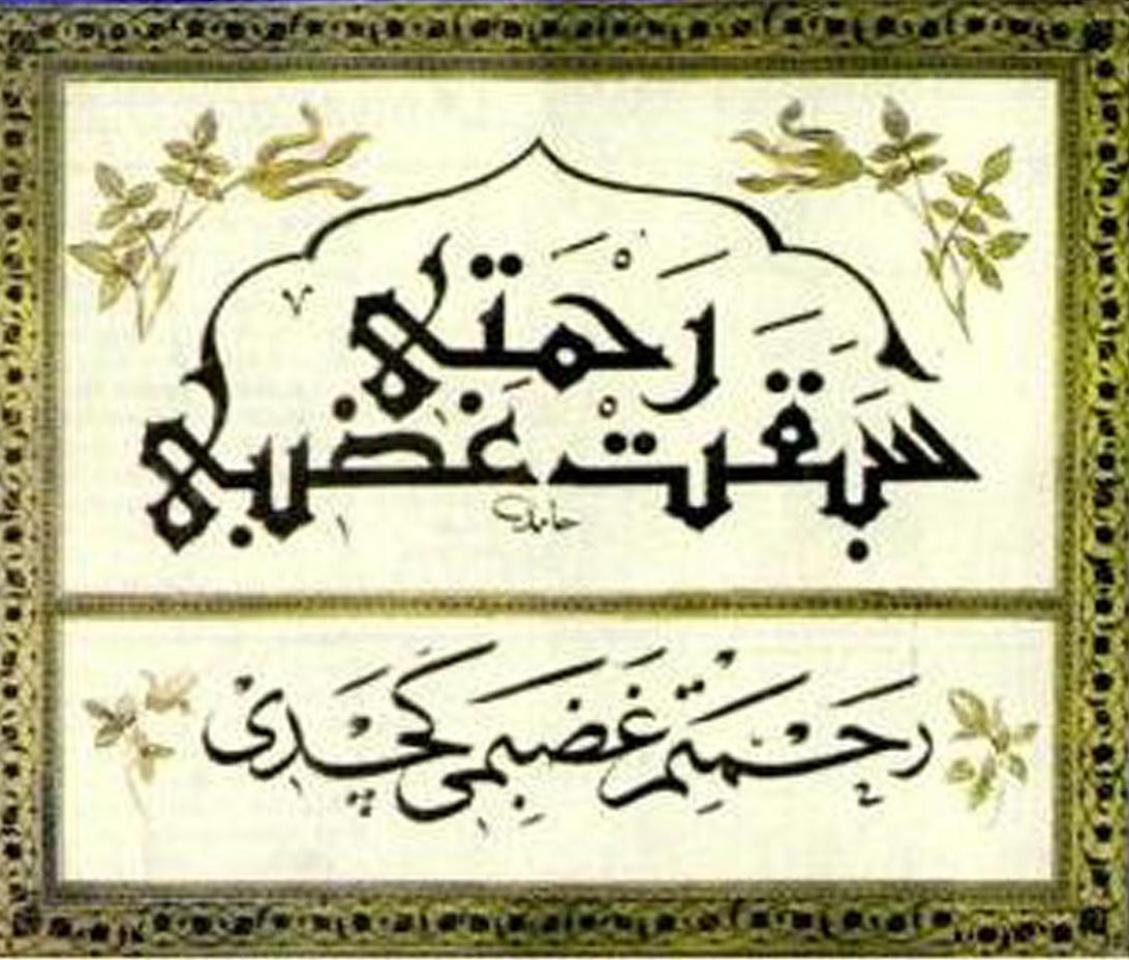 رَحْمَتِى
سَبَقَتْ غَضَبِى
حامد
رحمتم غضبمى كچدى